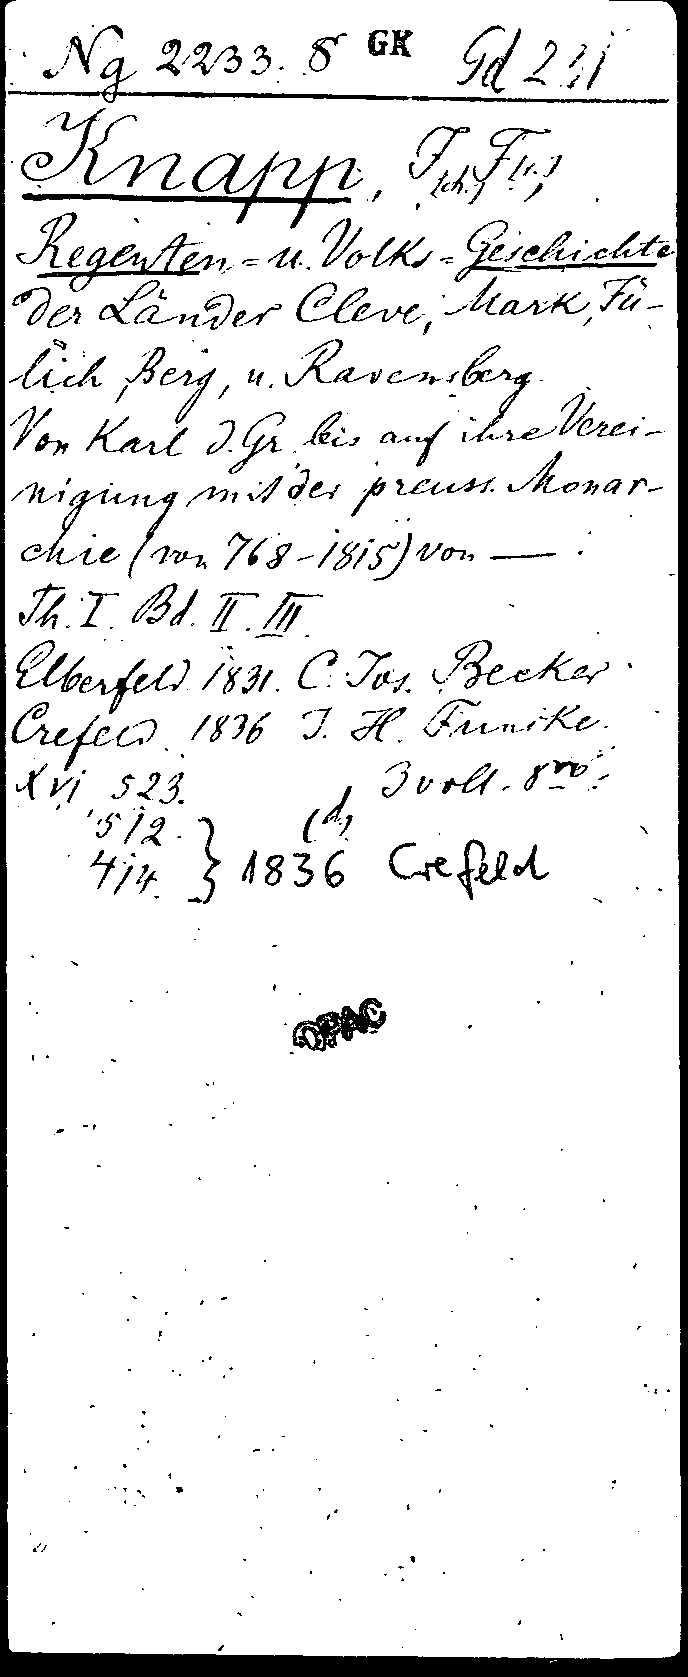 Ng 2233. 8 GK Gd 231
Knapp, J(oh.) Fr.,
Regenten- u. Volks-Geschichte
der Länder Cleve, Mark, Jü-
lich, Berg, u. Ravensberg.
Von Karl d. Gr. bis auf ihre Verei-
nigung mit der preuss. Monar-
chie (von 768-1815) von — .
Th. I. Bd. II. III.
Elberfeld 1831. C. Jos. Becker.
Crefeld. 1836 J. H. Funcke.
XVI 523. 3 voll. 8vo.
512. (d)
414. } 1836 Crefeld
OPAC